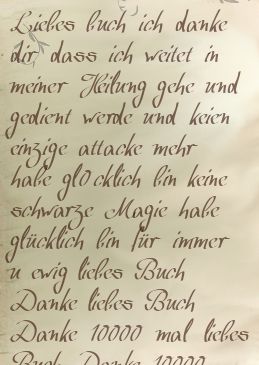 Liebes buch ich danke
dir dass ich weitet in
meiner Heilung gehe und
gedient werde und keien
einzige attacke mehr
habe gl0 cklich bin keine
schwarze Magie habe
glücklich bin für immer
u ewig liebes Buch
Danke liebes Buch
Danke 10000 mal liebes
Buch Danke 10000